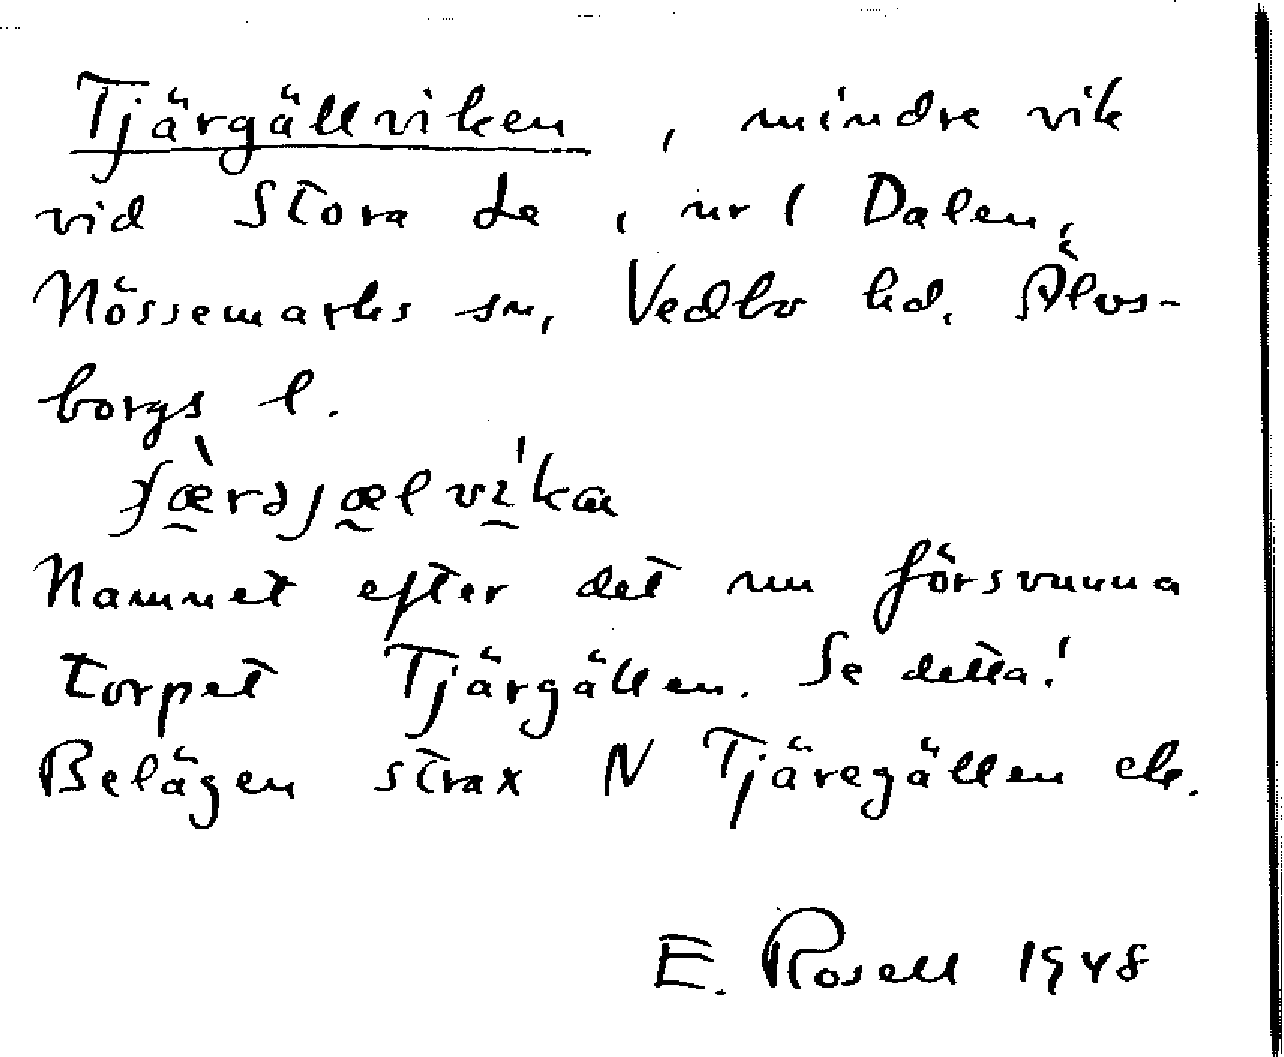 Tjärgällviken, mindre vik
vid Stora Le, nr 1 Dalen,
Nössemarks sn, Vedbo hd. Älvs-
borgs l.
Namnet efter det nu försvunna
torpet Tjärgällen. Se detta!
Belägen strax N Tjäregällen ek.
E. Rosell 1948